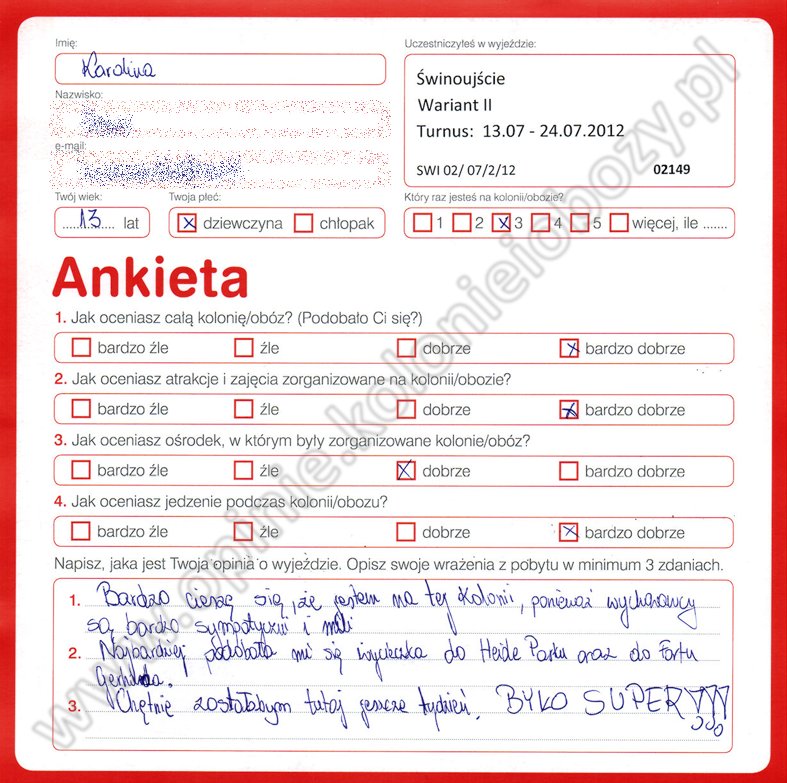 Imię:
Karolina
Uczestniczyłeś w wyjeździe:
Świnoujście
Wariant II
Turnus: 13.07 - 24.07.2012
SWI 02/ 07/2/12 02149
Nazwisko:
e-mail:
Twój wiek:
13 lat
Twoja płeć:
dziewczyna chłopak
Który raz jesteś na kolonii/obozie?
1 2 3 4 5 więcej, ile .......
Ankieta
1. Jak oceniasz całą kolonię/obóz? (Podobało Ci się?)
bardzo źle źle dobrze bardzo dobrze
2. Jak oceniasz atrakcje i zajęcia zorganizowane na kolonii/obozie?
bardzo źle źle dobrze bardzo dobrze
3. Jak oceniasz ośrodek, w którym były zorganizowane kolonie/obóz?
bardzo źle źle dobrze bardzo dobrze
4. Jak oceniasz jedzenie podczas kolonii/obozu?
bardzo źle źle dobrze bardzo dobrze
Napisz, jaka jest Twoja opinia o wyjeździe. Opisz swoje wrażenia z pobytu w minimum 3 zdaniach.
1. Bardzo cieszę się, że jestem na tej kolonii, ponieważ wychowawcy
są bardzo sympatyczni i mili
2. Najbardziej podobała mi się wycieczka do Heide Parku oraz do Fortu
Gerharda.
3. Chętnie zostałabym tutaj jeszcze tydzień. BYŁO SUPER!!!
www.opinie.kolonieiobozy.pl